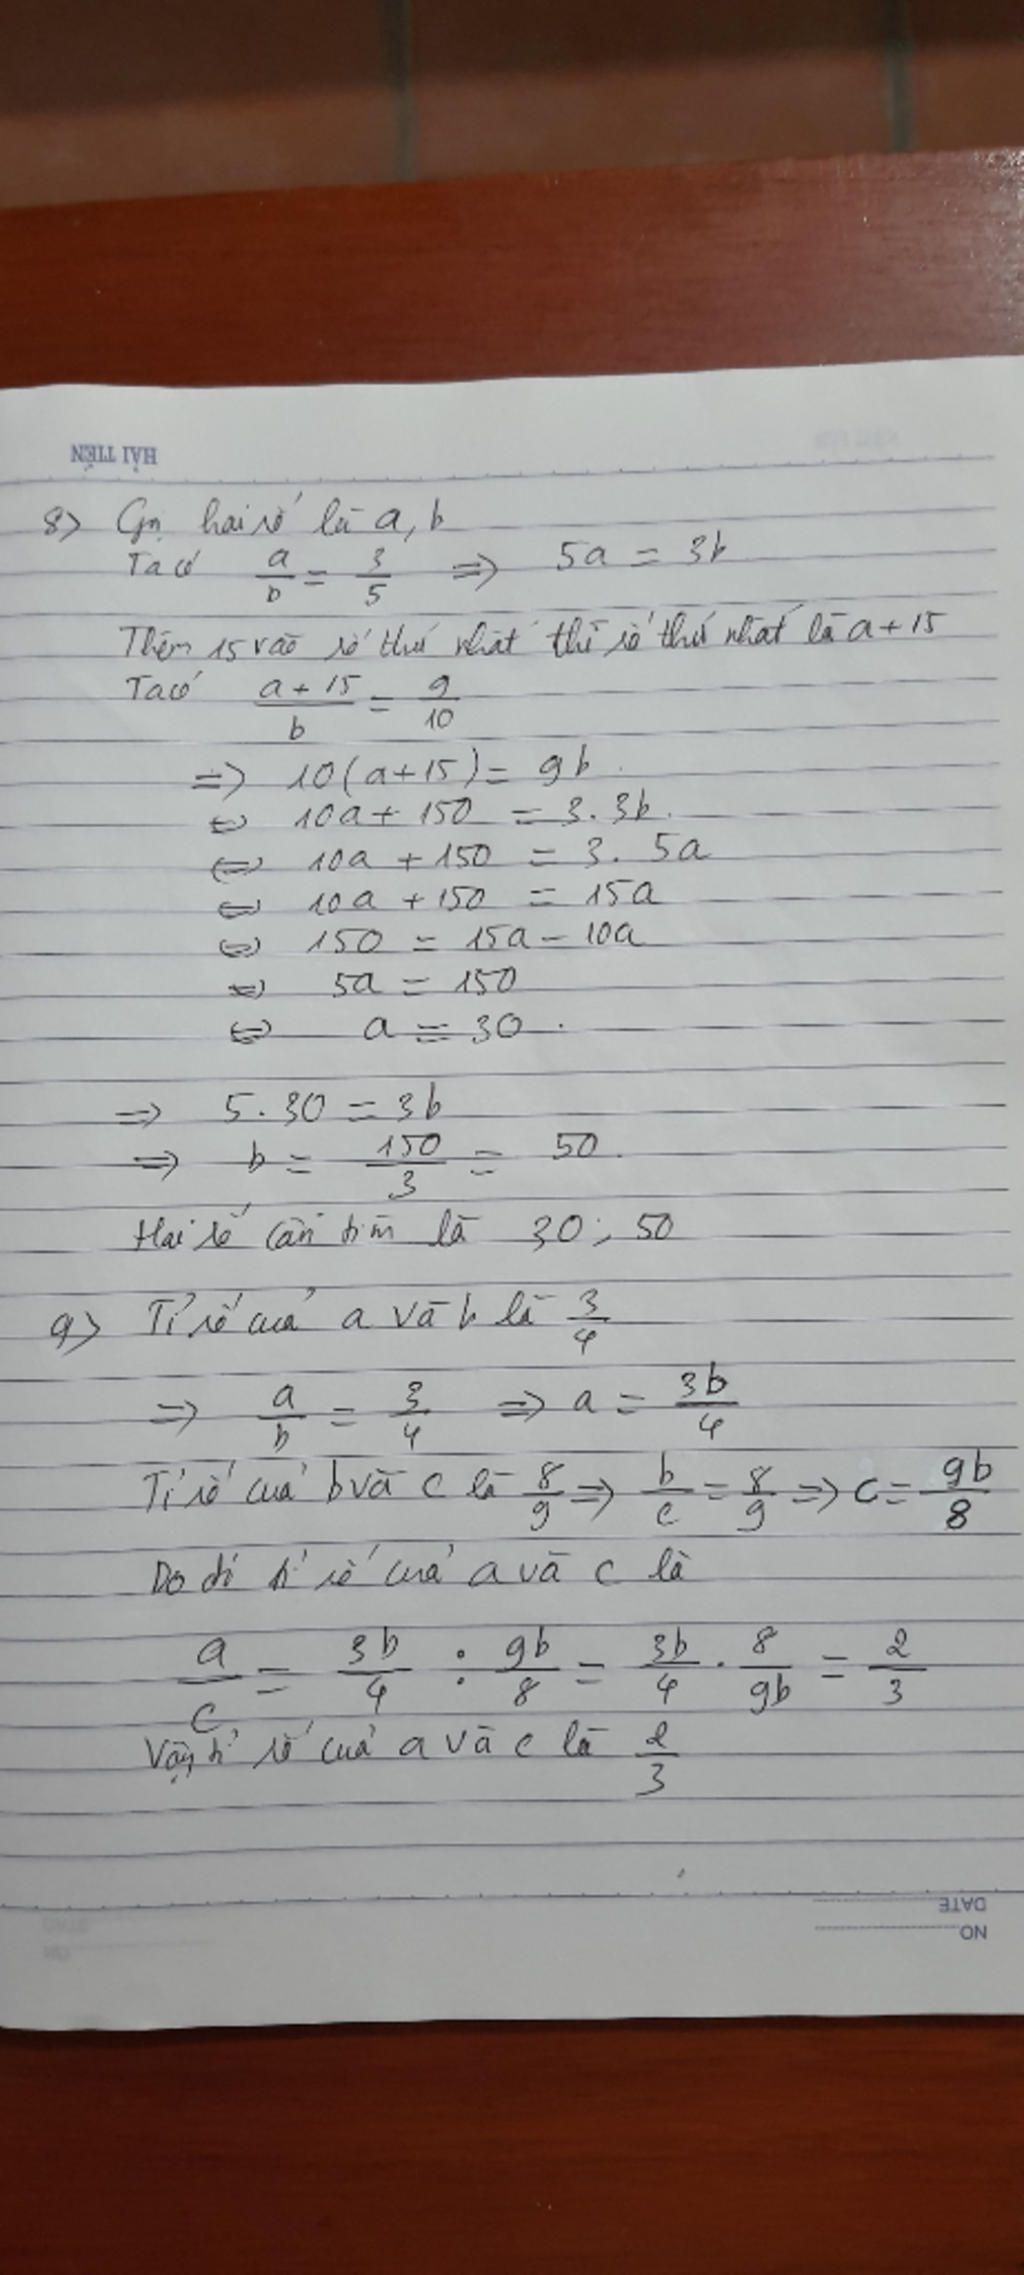 HẢI TIẾN
8> Gọi hai số là a, b
Ta có a/b = 3/5 => 5a = 3b
Thêm 15 vào số thứ nhất thì số thứ nhất là a + 15
Ta có (a + 15)/b = 9/10
=> 10(a+15) = 9b.
<=> 10a + 150 = 3.3b.
<=> 10a + 150 = 3. 5a
<=> 10a + 150 = 15a
<=> 150 = 15a - 10a
<=> 5a = 150
<=> a = 30.
=> 5.30 = 3b
=> b = 150/3 = 50.
Hai số cần tìm là 30; 50
9> Tỉ số của a và b là 3/4
=> a/b = 3/4 => a = 3b/4
Tỉ số của b và c là 8/9 => b/c = 8/9 => c = 9b/8
Do đó tỉ số của a và c là
a/c = 3b/4 : 9b/8 = 3b/4 . 8/9b = 2/3
Vậy tỉ số của a và c là 2/3
DATE
NO